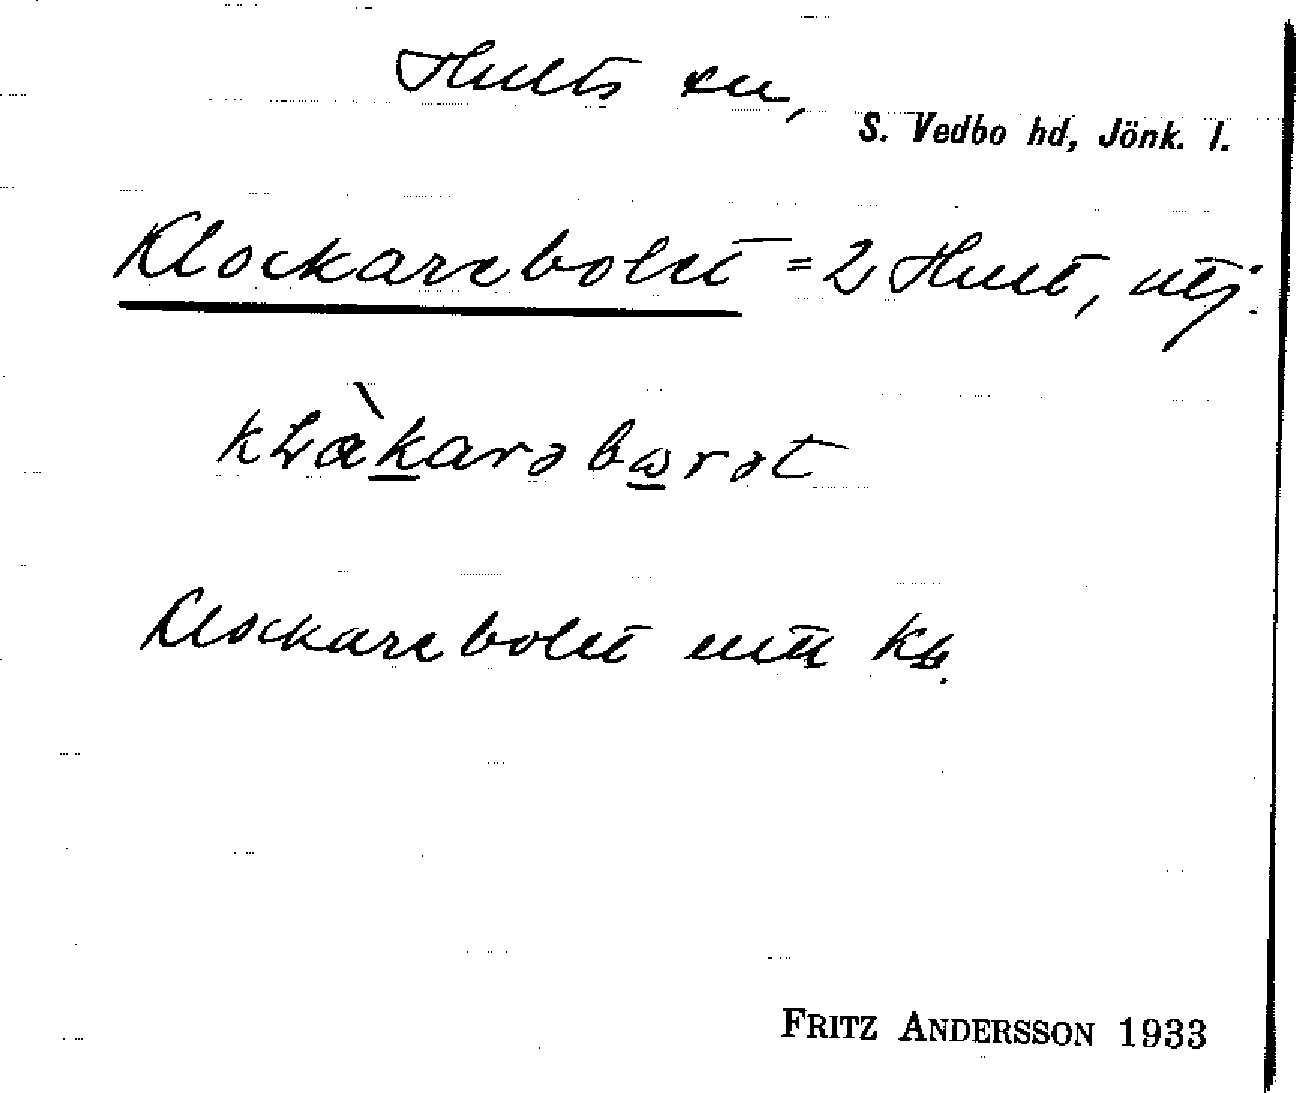 Hults sn,
S. Vedbo hd, Jönk. l.
Klockarebolet = 2 Hult, utj.
kɫɑ̀karəbωrət
Klockarebolet utm kb.
Fritz Andersson 1933